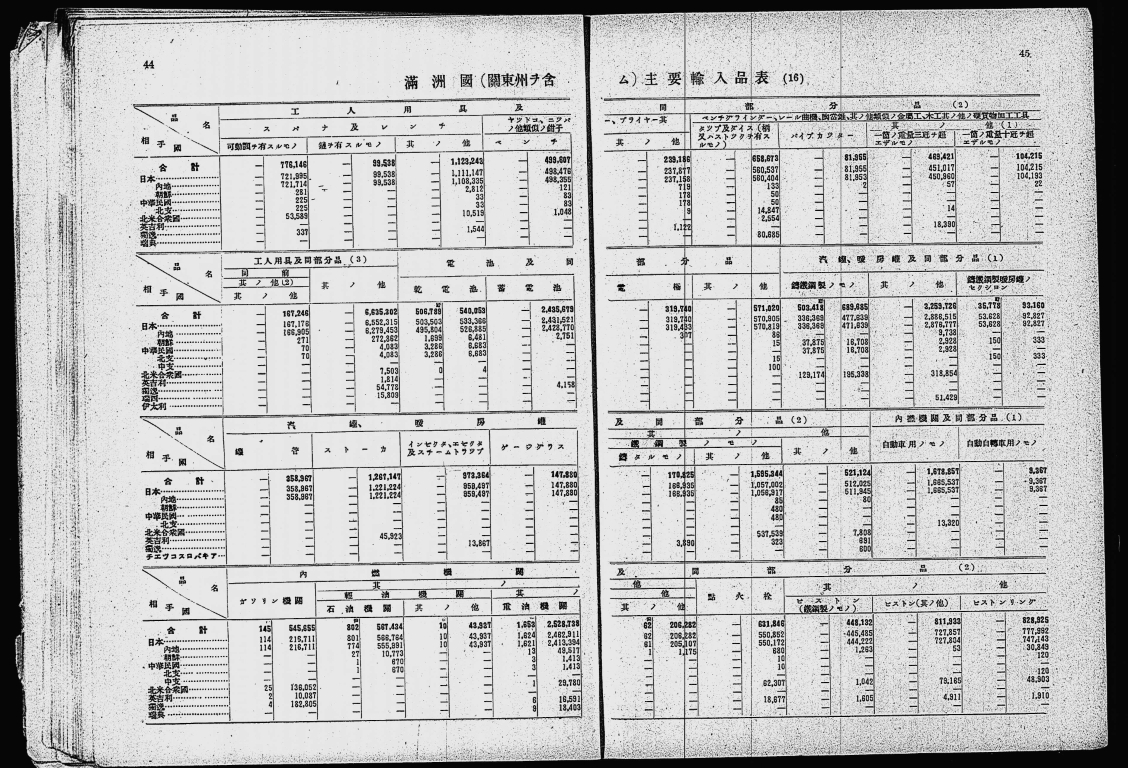 44
滿洲國(關東州ヲ含
工人用具及
品名
相手國
スパナ及レンチ
可動顎ヲ有スルモノ
鏈ヲ有スルモノ
其ノ他
ペンチ
合計 776,146 99,538 1,123,243 499,607
日本 721,995 99,538 1,111,147 498,476
內地 721,714 99,538 1,108,335 498,355
朝鮮 281 2,812 121
中華民國 225 33 83
北支 225 33 83
北米合衆國 53,589 10,519 1,048
英吉利
獨逸 337 1,544
瑞典
品名
相手國
工人用具及同部分品(3)
電池及同
同前
其ノ他(2)
其ノ他
其ノ他
乾電池
蓄電池
合計 167,246 6,635,302 506,789 540,053 2,435,679
日本 167,176 6,552,315 503,503 533,366 2,431,521
內地 166,905 6,279,453 495,804 526,885 2,428,770
朝鮮 271 272,862 1,699 6,481 2,751
中華民國 70 4,083 3,286 6,683
北支 70 4,083 3,286 6,683
中支
北米合衆國 7,503 0 4
英吉利 1,814
獨逸 54,778 4,158
瑞西 15,809
伊太利
品名
相手國
汽罐、暖房罐
罐管
ストーカ
インゼクタ、エゼクタ及スチームトラツプ
ゲージグラス
合計 358,967 1,267,147 973,364 147,880
日本 358,967 1,221,224 959,497 147,880
內地 358,967 1,221,224 959,497 147,880
朝鮮
中華民國
北支
北米合衆國 45,923
英吉利 13,867
獨逸
チエツコスロバキア
品名
相手國
內燃機關
其ノ
ガソリン機關
輕油機關
其ノ
石油機關
其ノ他
重油機關
合計 145 545,655 802 567,434 10 43,937 1,653 2,528,738
日本 114 215,711 801 566,764 10 43,937 1,624 2,462,911
內地 114 215,711 774 555,991 10 43,937 1,621 2,413,394
朝鮮 27 10,773 13 49,517
中華民國 1 670 3 1,413
北支 1 670 3 1,413
中支
北米合衆國 25 136,052 1 29,780
英吉利 2 10,087
獨逸 4 182,805 6 16,591
瑞典 9 18,403
45
ム)主要輸入品表(16)
同部分品(2)
、プライヤー其
其ノ他
パイプカツター
其ノ他(1)
一箇ノ重量三瓩ヲ超エザルモノ
一箇ノ重量十瓩ヲ超エザルモノ
239,186 658,673 81,955 469,421 104,215
237,877 560,537 81,955 451,017 104,215
237,158 560,404 81,953 450,960 104,193
719 133 2 57 22
178 50
178 50
9 14,847 14
2,554
1,122 18,390
80,685
部分品
汽罐、暖房罐及同部分品(1)
電極
鑄鐵鋼製ノモノ
其ノ他
鑄鐵鋼製暖房罐ノセクシヨン
319,740 571,020 503,418 689,685 3,259,726 35,778 93,160
319,740 570,905 336,369 477,639 2,886,515 53,628 92,827
319,433 570,819 336,369 471,639 2,876,777 53,628 92,827
307 86 9,738
15 37,875 16,708 2,928 150 333
37,875 16,708 2,928
15 150 333
100
129,174 195,338 318,854
51,429
及同部分品(2)
內燃機關及同部分品(1)
其ノ他
鐵鋼製ノモノ
鑄タルモノ
其ノ他
其ノ他
自動車用ノモノ
自動自轉車用ノモノ
170,825 1,595,344 521,124 1,678,857 9,367
166,935 1,057,002 512,025 1,665,537 9,367
166,935 1,056,917 511,945 1,665,537 9,367
85 80
480
480
13,320
537,539 7,808
3,890 323 691
600
及同部分品(2)
他
他
其ノ他
其ノ他
點火栓
ピストン(鐵鋼製ノモノ)
ピストン(其ノ他)
ピストンリング
62 206,282 631,846 448,132 811,933 828,925
62 206,282 550,852 445,485 727,857 777,992
61 205,107 550,172 444,222 727,804 747,143
1 1,175 680 1,263 53 30,849
10 120
10
120
62,307 1,042 79,165 48,903
18,677 1,605 4,911 1,910